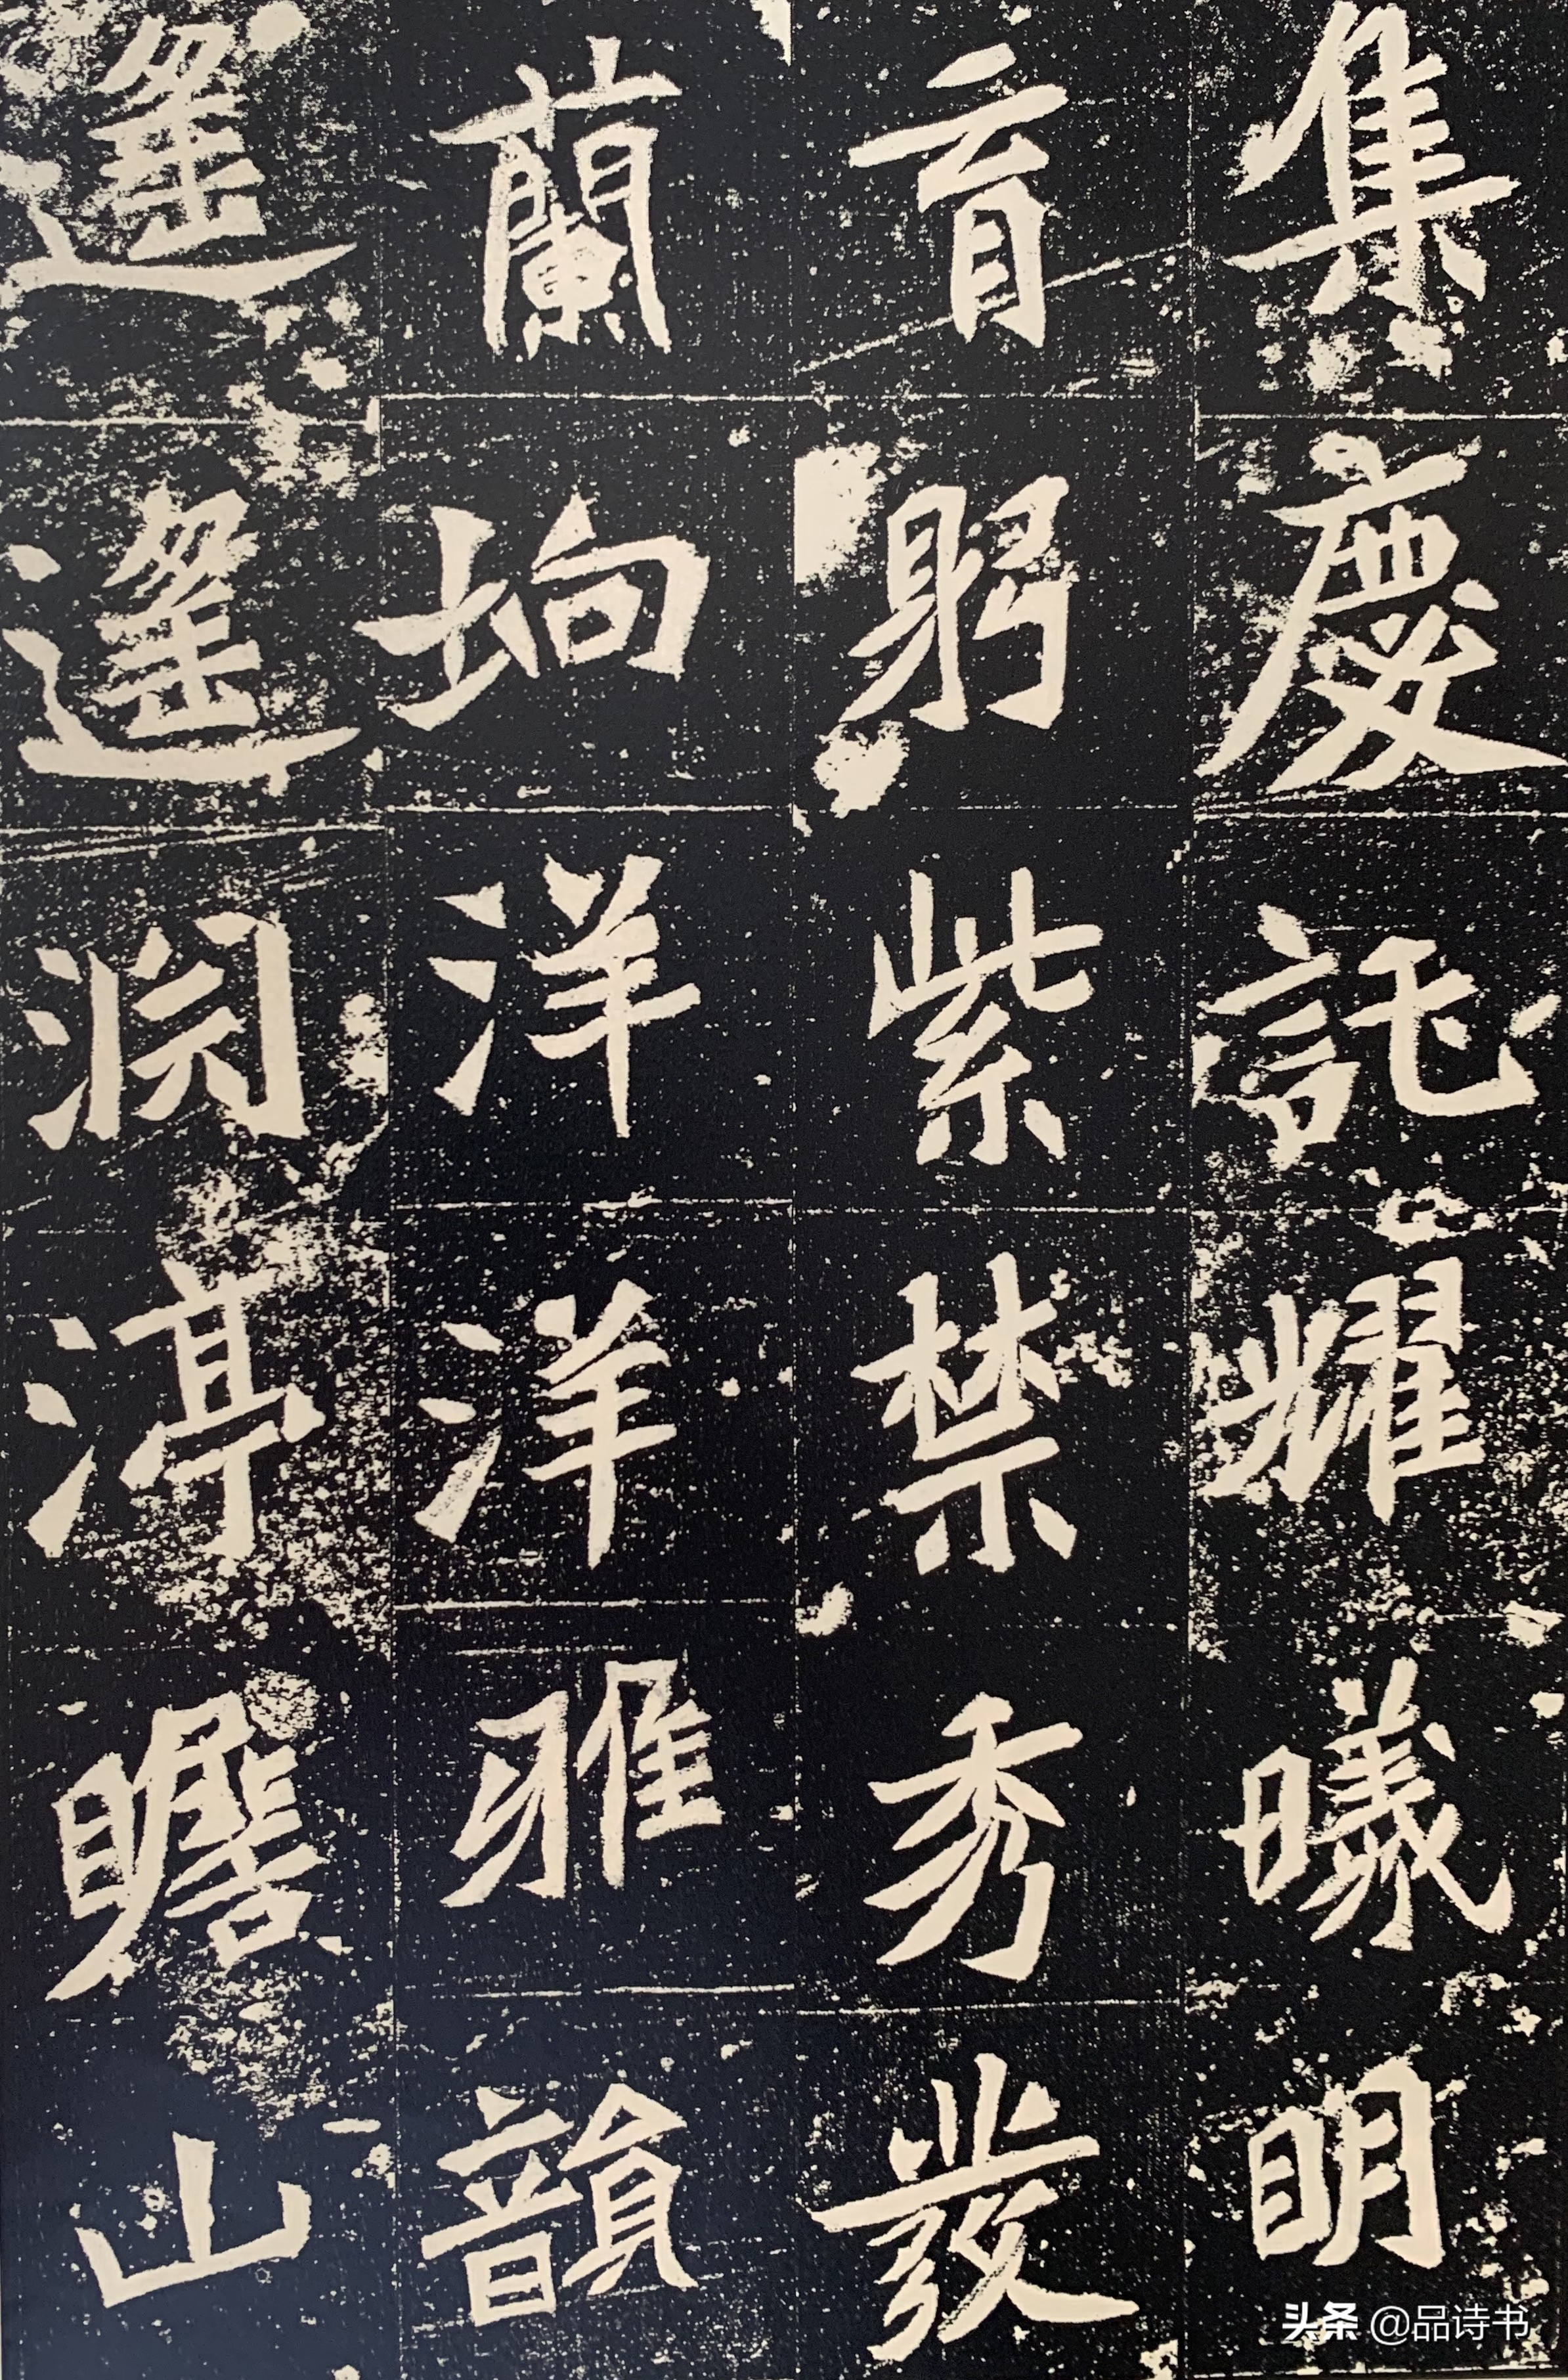 集慶託耀曦明
育躬紫禁秀發
蘭坰洋洋雅韻
遙遙淵渟瞻山
头条 @品诗书